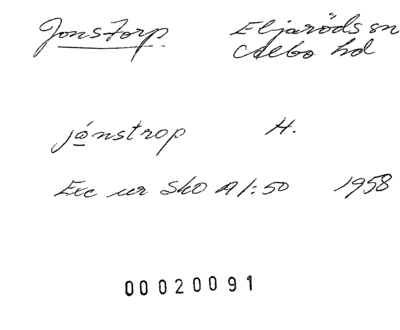 Jonstorp Eljaröds sn
Albo hd
jónstrop H.
Exc ur SkO A1:50 1958
00020091